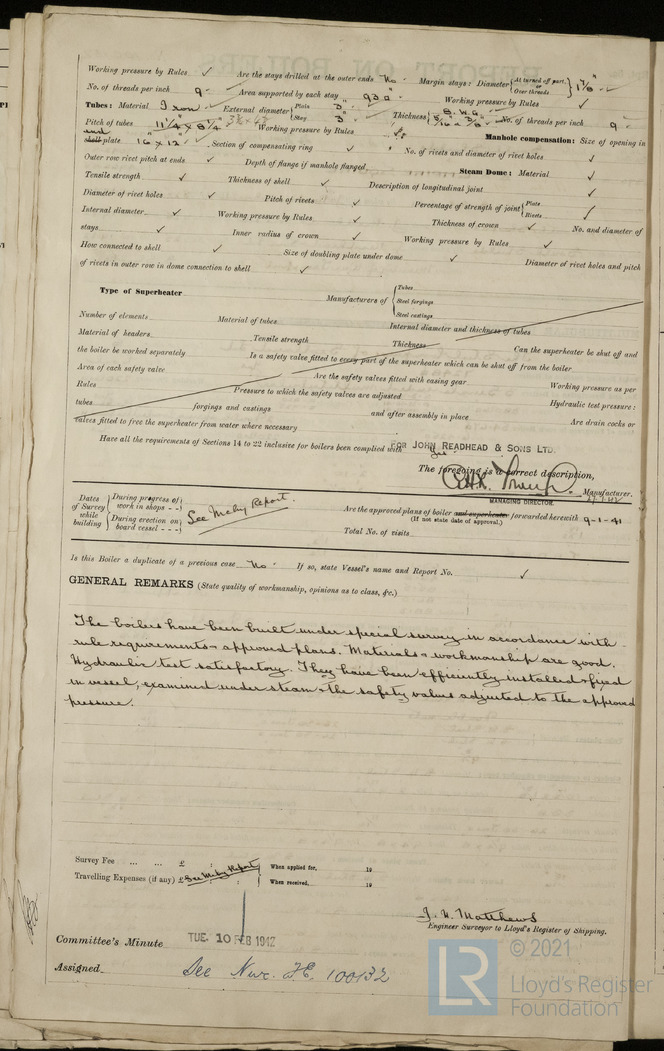 Working pressure by Rules ✓ Are the stays drilled at the outer ends No Margin stays: Diameter { At turned off part, or Over threads } 1⅞"
No. of threads per inch 9 Area supported by each stay 930" Working pressure by Rules ✓
Tubes: Material Iron External diameter { Plain 3" Stay 3" Thickness { 8. W.G. 5/16 & 3/8 No. of threads per inch 9
Pitch of tubes 11¼ x 8¼ Working pressure by Rules Manhole compensation: Size of opening in
end shell plate 16" x 12" Section of compensating ring ✓ No. of rivets and diameter of rivet holes ✓
Outer row rivet pitch at ends ✓ Depth of flange if manhole flanged Steam Dome: Material ✓
Tensile strength ✓ Thickness of shell ✓ Description of longitudinal joint ✓
Diameter of rivet holes ✓ Pitch of rivets ✓ Percentage of strength of joint { Plate Rivets ✓
Internal diameter ✓ Working pressure by Rules ✓ Thickness of crown ✓ No. and diameter of
stays ✓ Inner radius of crown ✓ Working pressure by Rules ✓
How connected to shell ✓ Size of doubling plate under dome ✓ Diameter of rivet holes and pitch
of rivets in outer row in dome connection to shell ✓
Type of Superheater Manufacturers of { Tubes Steel forgings Steel castings
Number of elements Material of tubes Internal diameter and thickness of tubes
Material of headers Tensile strength Thickness Can the superheater be shut off and
the boiler be worked separately Is a safety valve fitted to every part of the superheater which can be shut off from the boiler
Area of each safety valve Are the safety valves fitted with easing gear Working pressure as per
Rules Pressure to which the safety valves are adjusted Hydraulic test pressure:
tubes forgings and castings and after assembly in place Are drain cocks or
valves fitted to free the superheater from water where necessary
Have all the requirements of Sections 14 to 22 inclusive for boilers been complied with Yes
FOR JOHN READHEAD & SONS LTD.
The foregoing is a correct description,
Manufacturer.
MANAGING DIRECTOR.
Dates of Survey while building { During progress of work in shops - - } { During erection on board vessel - - - } See Mchy Report.
Are the approved plans of boiler and superheater forwarded herewith 9-1-41
(If not state date of approval.)
Total No. of visits
Is this Boiler a duplicate of a previous case No If so, state Vessel's name and Report No. ✓
GENERAL REMARKS (State quality of workmanship, opinions as to class, &c.)
The boilers have been built under special survey in accordance with
rule requirements & approved plans. Materials & workmanship are good.
Hydraulic test satisfactory. They have been efficiently installed & fixed
in vessel, examined under steam & the safety valves adjusted to the approved
pressure.
Survey Fee ... ... £ : : When applied for, 19
Travelling Expenses (if any) £ See Mchy Report When received, 19
J. H. Matthews
Engineer Surveyor to Lloyd's Register of Shipping.
Committee's Minute TUE. 10 FEB 1942
Assigned See Nwc. F.E. 100132
© 2021
LR
Lloyd's Register
Foundation